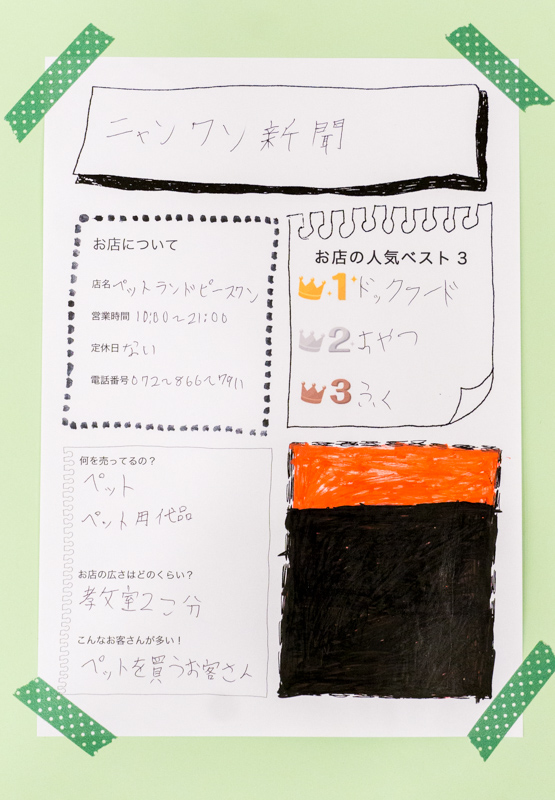 ニャンワン新聞
お店について
店名 ペットランドピースワン
営業時間 10:00〜21:00
定休日 ない
電話番号 072〜866〜7911
お店の人気ベスト3
1 ドックフード
2 おやつ
3 ふく
何を売ってるの?
ペット
ペット用代品
お店の広さはどのくらい?
孝文室2こ分
こんなお客さんが多い!
ペットを買うお客さん